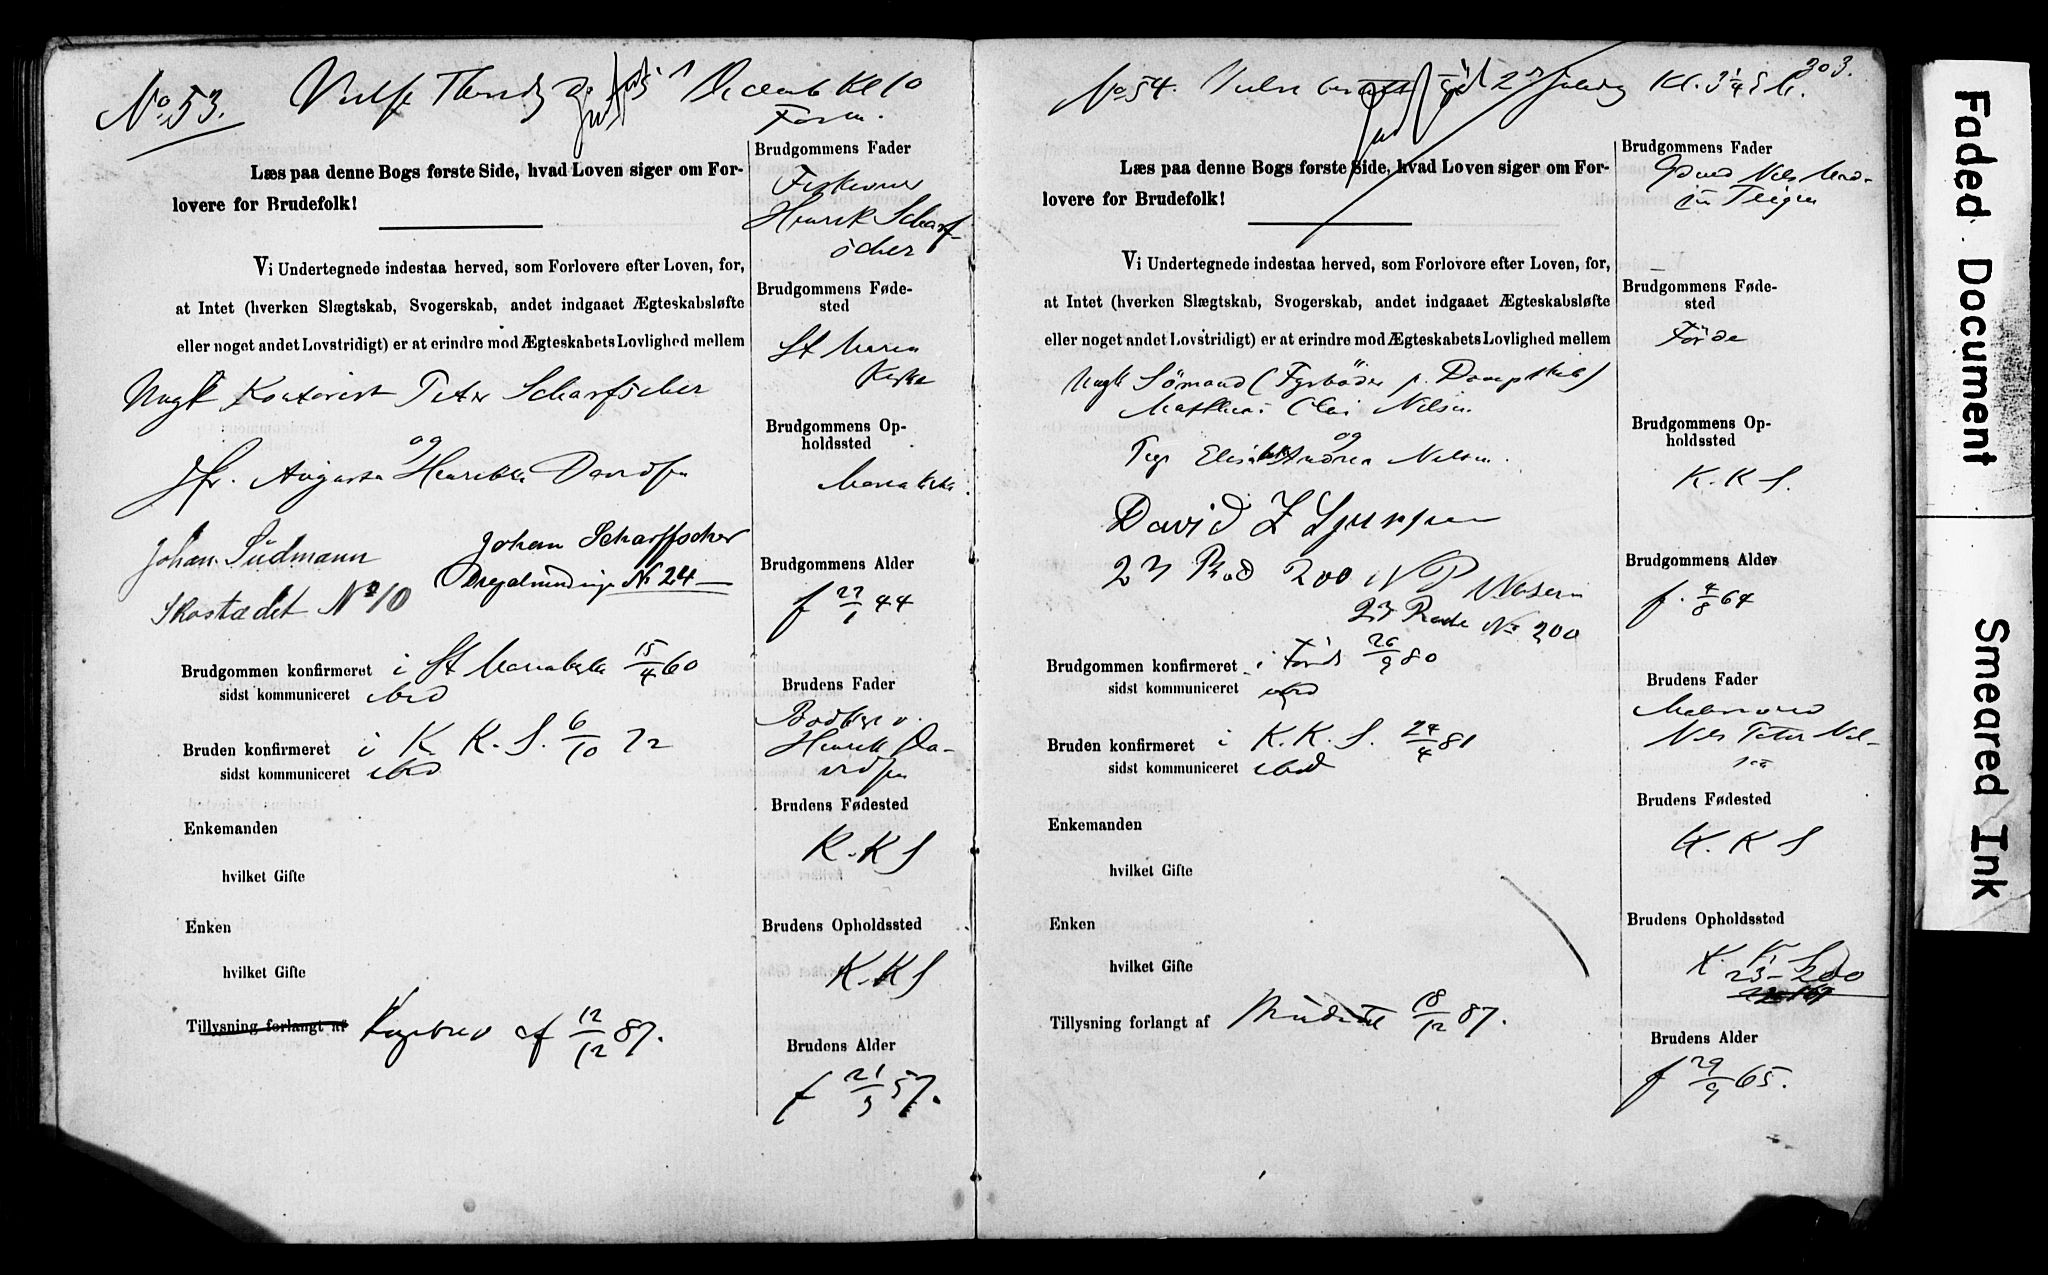 No 53.
Decemb Kl 10
Form.
Læs paa denne Bogs første Side, hvad Loven siger om For-
lovere for Brudefolk!
Vi Undertegnede indestaa herved, som Forlovere efter Loven, for,
at Intet (hverken Slægtskab, Svogerskab, andet indgaaet Ægteskabsløfte
eller noget andet Lovstridigt) er at erindre mod Ægteskabets Lovlighed mellem
Ungk Kontorist Peter Scharfscher
og
Jfr. Augusta Henrikke Davidsen
Johan Südmann
Skostædet No 10
Johan Scharffscher
Dregalmendinge No 24
Brudgommen konfirmeret i St Mariakirke 15/4 60
sidst kommuniceret ibid
Bruden konfirmeret i K. K. S. 6/10 72
sidst kommuniceret ibid
Enkemanden
hvilket Gifte
Enken
hvilket Gifte
Tillysning forlangt af Kgebrev af 12/12 87.
Brudgommens Fader
Henrik Scharf-
scher
Brudgommens Føde-
sted
St Maria
Kirke
Brudgommens Op-
holdssted
Mariakirke.
Brudgommens Alder
f 27/1 44
Brudens Fader
Henrik Da-
vidsen
Brudens Fødested
K. K S
Brudens Opholdssted
K. K S
Brudens Alder
f 21/3 57.
303.
No 54.
Kl. 3 1/4
Læs paa denne Bogs første Side, hvad Loven siger om For-
lovere for Brudefolk!
Vi Undertegnede indestaa herved, som Forlovere efter Loven, for,
at Intet (hverken Slægtskab, Svogerskab, andet indgaaet Ægteskabsløfte
eller noget andet Lovstridigt) er at erindre mod Ægteskabets Lovlighed mellem
Ungk Sömand (Fyrböder p. Dampskib)
Matthias Olai Nilsen
og
Pige Elisabet Andrea Nilsen.
David Z
23 Rod 200 N P Nilsen
23 Rode No 200
Brudgommen konfirmeret i Förde 26/9 80
sidst kommuniceret ibid
Bruden konfirmeret i K. K. S. 24/4 81
sidst kommuniceret ibid
Enkemanden
hvilket Gifte
Enken
hvilket Gifte
Tillysning forlangt af 18/12 87.
Brudgommens Fader
Nils
Brudgommens Føde-
sted
Förde
Brudgommens Op-
holdssted
K. K S.
Brudgommens Alder
f. 4/8 64
Brudens Fader
Nils Peter Nil-
sen
Brudens Fødested
K. K S
Brudens Opholdssted
K. K. S
23-200
Brudens Alder
f 29/9 65.
Faded Document
Smeared Ink